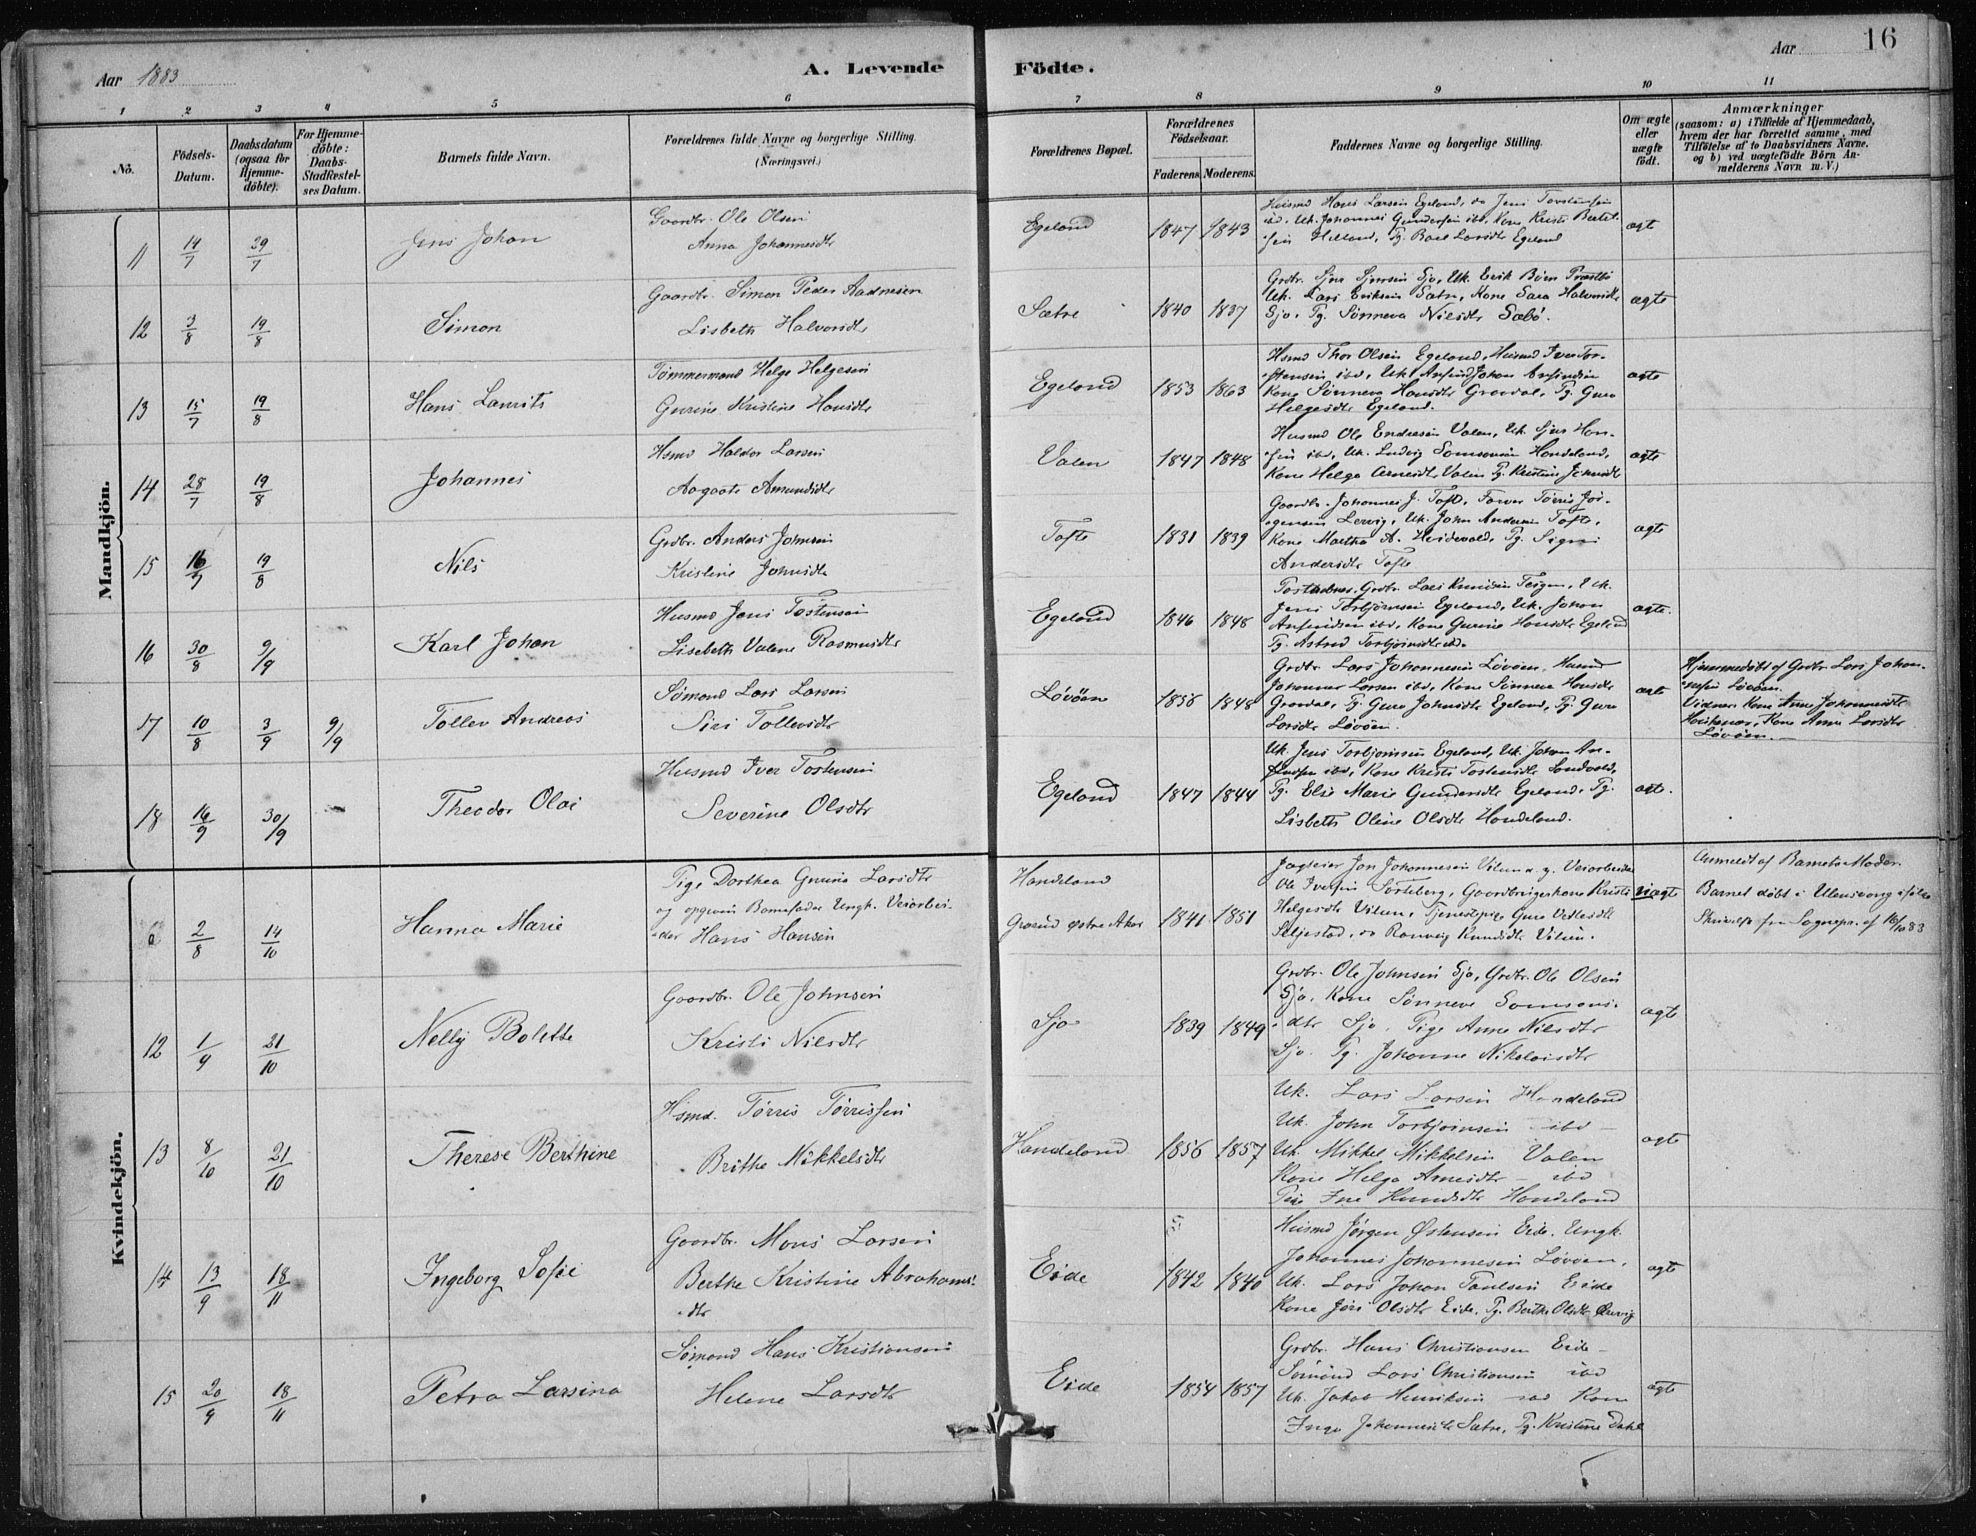 Aar 1883
A. Levende
Födte.
Aar
16
1 2 3 4 5 6 7 8 9 10 11
No.
Födsels-Datum.
Daabsdatum (ogsaa for Hjemmedöbte).
For Hjemmedöbte: Daabs-Stadfæstelses Datum.
Barnets fulde Navn.
Forældrenes fulde Navne og borgerlige Stilling.
(Næringsvei.)
Forældrenes Bopæl.
Forældrenes Födselsaar.
Faderens Moderens
Faddernes Navne og borgerlige Stilling.
Om ægte eller uægte födt.
Anmærkninger
(saasom: a) i Tilfælde af Hjemmedaab,
hvem der har forrettet samme, med
Tilföielse af to Daabsvidners Navne.
og b) ved uægtefödte Börn An-
melderens Navn m. V.)
Mandkjön.
11 14/7 29/7 Jens Johan
Gaardbr. Ole Olsen
Anna Johannesdtr
Egeland 1847 1843
Husmd Hans Larsen Egeland, do Jens Torstensen
ibd. Uk. Johannes Gundersen ibd, Kone Kristi Bertel-
sen Helland, Pg. Boel Larsdtr Egeland
ægte
12 3/8 19/8 Simon
Gaardbr. Simon Peder Aadnesen
Lisbeth Halvorsdtr
Sætre 1840 1837
Grdbr. Sjur Sjursen Sjo, Uk. Erik Bjørn
Uk. Lars Eriksen Sætre, Kone Sara Halvorsdtr
Sjo, Pg. Sønneva Nilsdtr Sæbö.
ægte
13 15/7 19/8 Hans Laurits
Tömmermand Helge Helgesen
Gurine Kristine Hansdtr
Egeland 1853 1863
Hsmd Thor Olsen Egeland, Husmd Iver Tor-
stensen ibd, Uk. Johan Anfindsen
Kone Sønneva Hansdtr Gravdal, Pg. Guro
Helgesdtr Egeland.
ægte
14 28/7 19/8 Johannes
Hsmd Haldor Larsen
Aagaate Amundsdtr
Valen 1847 1848
Husmd Ole Endresen Valen, Uk. Sjur Han-
sen ibd, Uk. Ludvig Samsonsen Handeland,
Kone Helga Arnesdtr Valen Pg. Kristine Johnsdtr
ægte
15 16/7 19/8 Nils
Grdbr. Anders Johnsen
Kristine Johnsdtr
Tofte 1831 1839
Gaardbr. Johannes J. Tofte, Farver Tørris Jør-
gensen Lervig, Uk. John Andersen Tofte,
Kone Martha A. Hvidevold, Pg. Signi
Andersdtr Tofte
ægte
16 30/8 9/9 Karl Johan
Husmd Jens Tostensen
Lisebeth Valene Rasmusdtr
Egeland 1846 1848
Grdbr. Lars Knudsen Teigen, Uk.
Jens Torbjörnsen Egeland, Uk. Johan
Anfindsen ibd, Kone Gurine Hansdtr Egeland
Pg. Astrid Torbjörnsdtr ibd.
ægte.
17 10/8 3/9 9/9 Tollev Andreas
Sømand Lars Larsen
Siri Tollevsdtr
Løvöen 1856 1848
Grdbr. Lars Johannesen Løvöen, Husmd
Johannes Larsen ibd, Kone Sönneva Hansdtr
Gravdal, Pg. Guro Johnsdtr Egeland, Pg. Guro
Larsdtr Løvöen.
ægte
Hjemmedöbt af Grdbr. Lars Johan-
nesen Løvöen.
Vidner Kone Anne Johannesdtr
Kone Anna Larsdtr
Løvöen.
18 16/9 30/9 Theodor Olai
Husmd Iver Tostensen
Severine Olsdtr
Egeland 1847 1844
Uk. Jens Torbjörnsen Egeland, Uk. Johan An-
findsen ibd, Kone Kristi Tostensdtr Sandvold,
Pg. Elise Marie Gundersdtr Egeland, Pg.
Lisbeth Oline Olsdtr Handeland.
ægte.
Kvindekjön.
2/8 14/10 Hanna Marie
Pige Dorthea Gurina Larsdtr
og opgiven Barnefader Ungk. Veiarbei-
der Hans Hansen
Handeland
Grorud østre Aker 1841 1851
Jægteier Jon Johannesen Vikun og Veiarbeider
Ole Iversen Gaardbrugerkone Kristi
Helgesdtr Vikun, Tjenestepige Guro Vetlesdtr
Seljestad, do Ranveig Knudsdtr Vikun.
uægte
Anmeldt af Barnets Moder.
Barnet döbt i Ullensvang ifölge
Skrivelse fra Sognepr. af 16/10 83
12 1/9 21/10 Nelly Bolette
Gaardbr. Ole Johnsen
Kristi Nilsdtr
Sjo 1839 1849
Grdbr. Ole Johnsen Sjo, Grdbr. Ole Olsen
Sjo. Kone Sønneve Samsons-
dtr Sjo. Pige Anne Nilsdtr
Sjo. Pg. Johanne Nikolaisdtr
ægte
13 8/10 21/10 Therese Berthine
Hsmd. Tørris Tørrissen
Brithe Mikkelsdtr
Handeland 1856 1857
Uk. Lars Larsen Handeland
Uk. John Torbjörnsen ibd
Uk. Mikkel Mikkelsen Valen
Kone Helga Arnesdtr ibd
Pige Ine Knudsdtr Handeland
ægte
14 13/9 18/11 Ingeborg Sofie
Gaardbr. Mons Larsen
Berthe Kristine Abrahams-
dtr
Eide 1842 1840
Husmd Jörgen Østensen Eide. Ungk.
Johannes Johannesen Løvöen,
Uk. Lars Johan Paulsen Eide
Kone Jöri Olsdtr Eide. Pg. Berthe Olsdtr
ægte
15 20/9 18/11 Petra Larsina
Sømand Hans Kristiansen
Helene Larsdtr
Eide 1854 1857
Grdbr. Hans Christiansen Eide
Sømand Lars Christiansen ibd
Uk. Jakob Henriksen ibd Kone
Inga Johannesdtr Sætre, Pg. Kristine Dahl
ægte